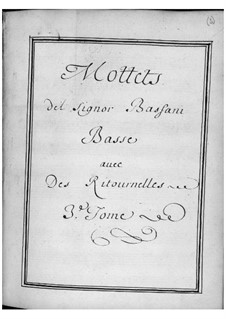 Mottets
Del Signor Bassani
Basse
avec
Des Ritournelles
3.e Tome